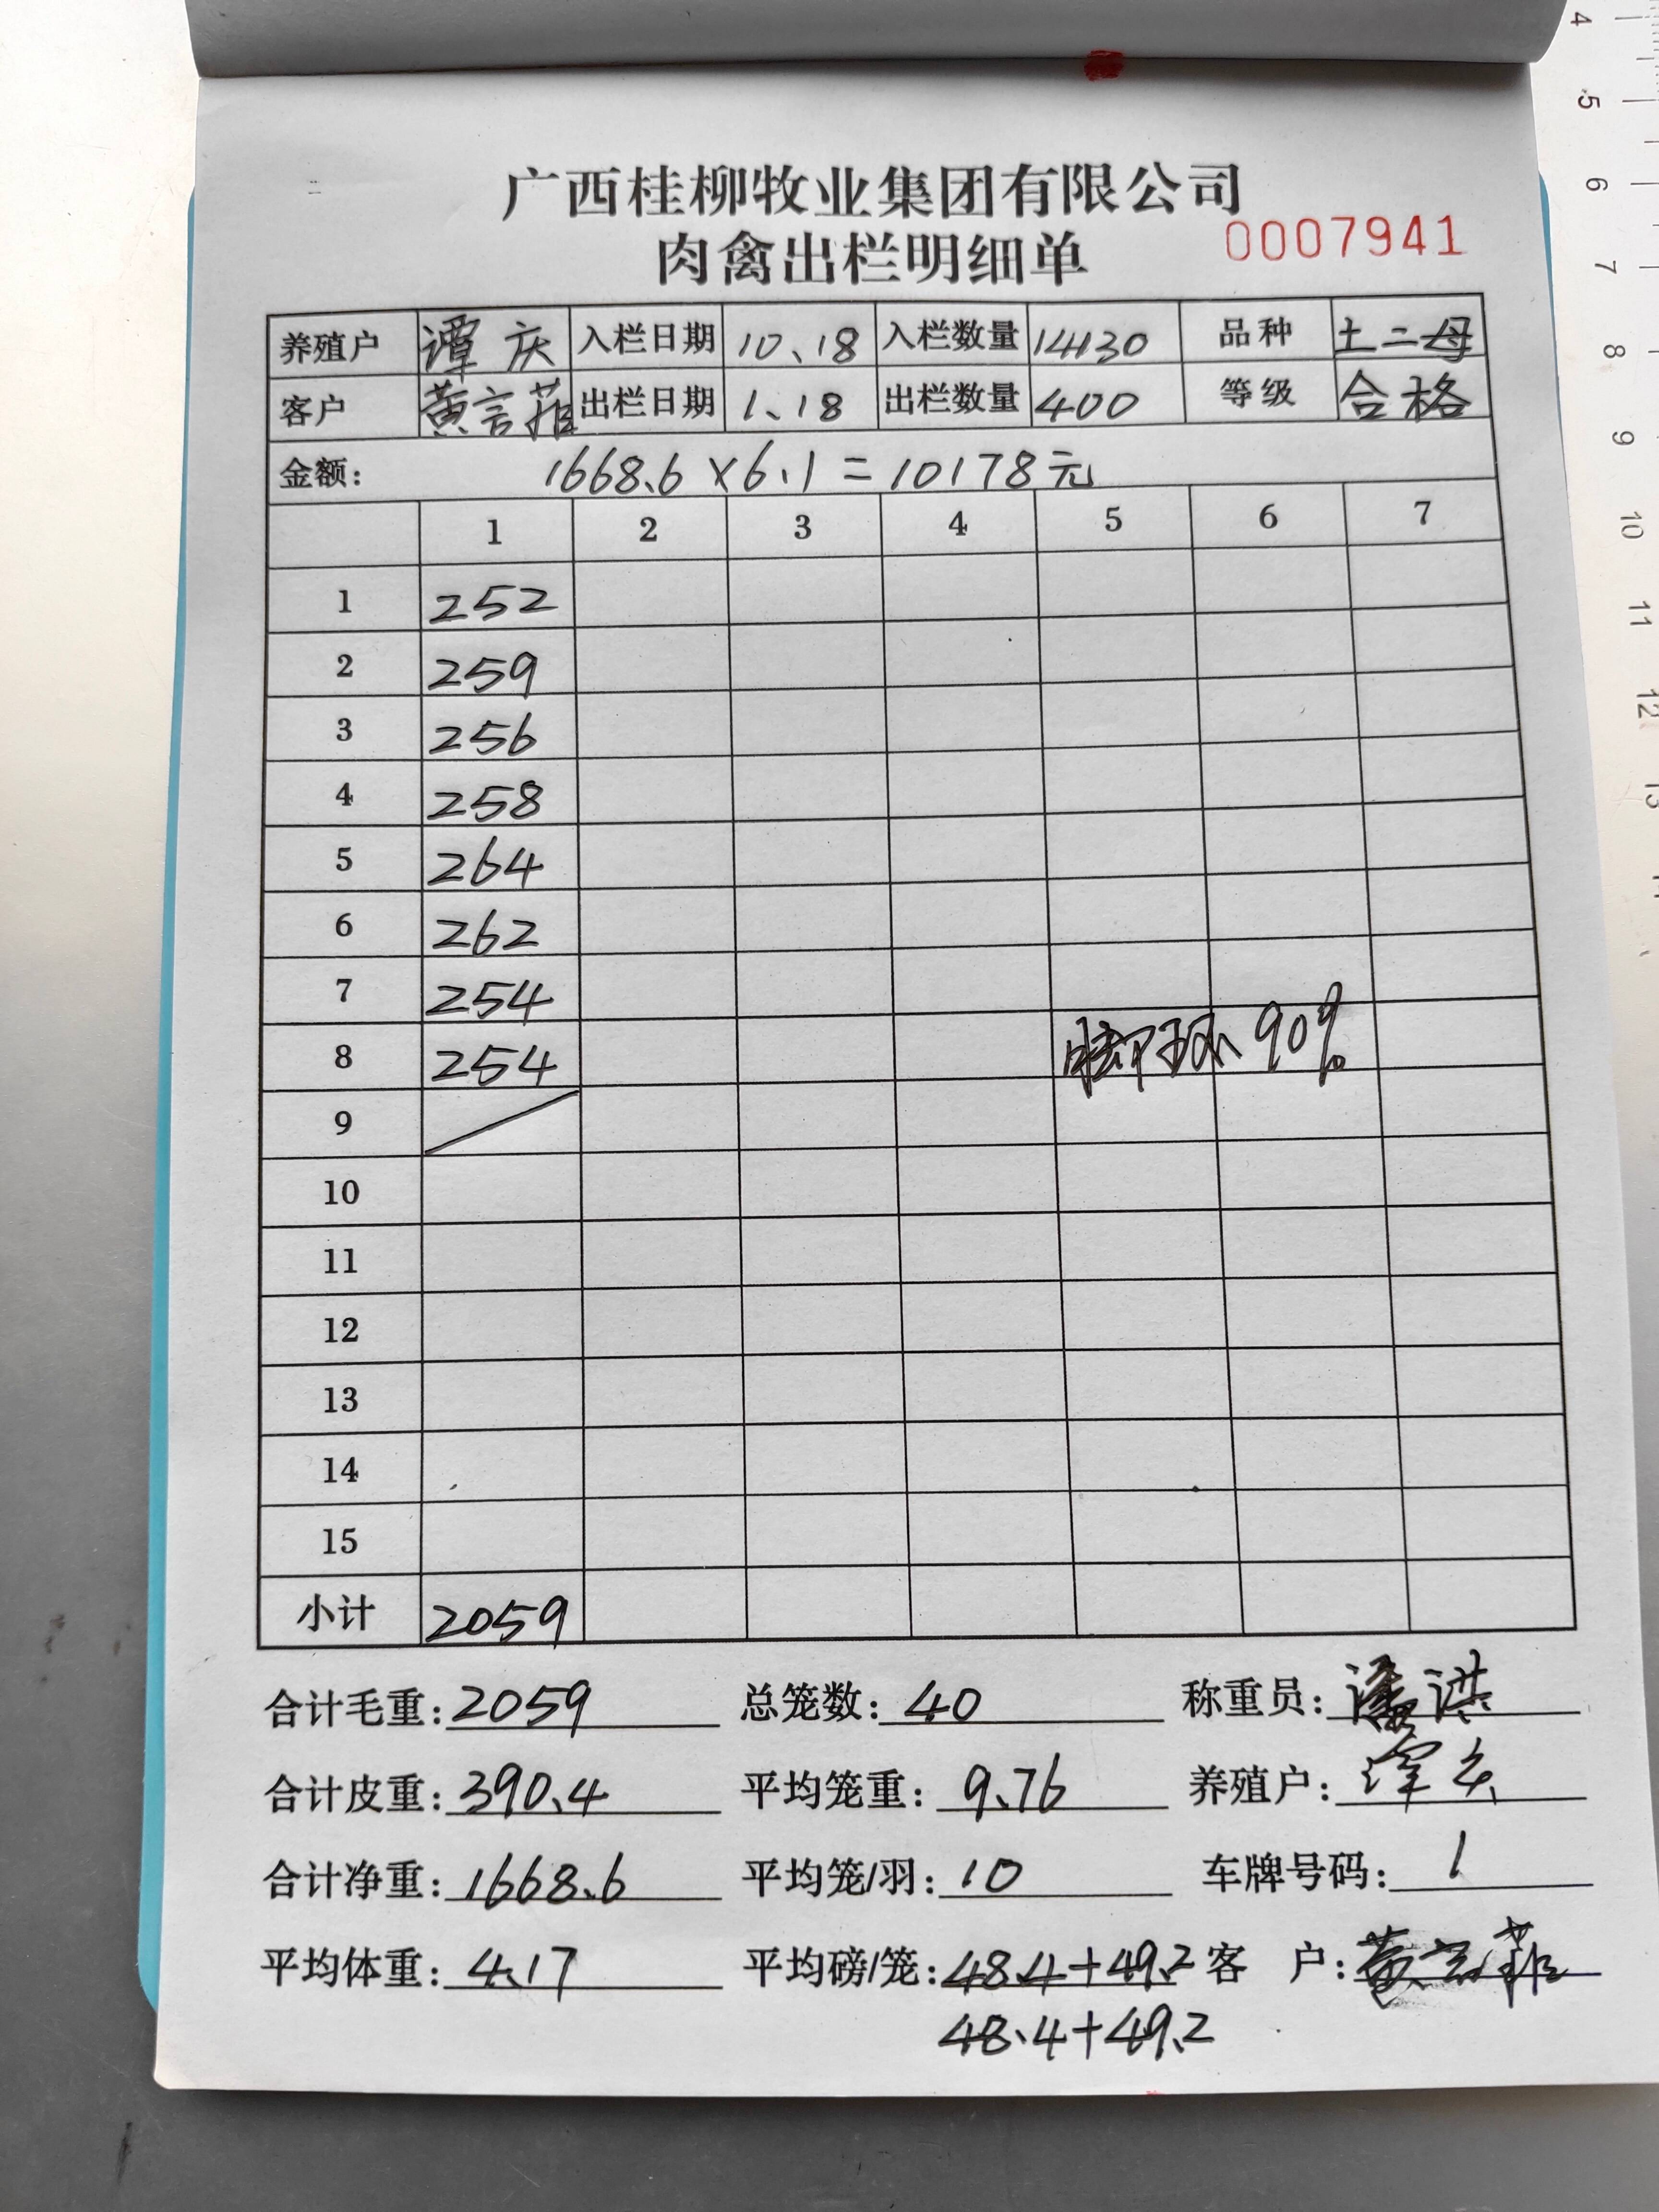 广西桂柳牧业集团有限公司
肉禽出栏明细单 0007941
养殖户 谭庆 入栏日期 10.18 入栏数量 14130 品种 土二母
客户 黄言菲 出栏日期 1.18 出栏数量 400 等级 合格
金额: 1668.6×6.1=10178元
1 2 3 4 5 6 7
1 252
2 259
3 256
4 258
5 264
6 262
7 254
8 254 脚环 90%
9
10
11
12
13
14
15
小计 2059
合计毛重: 2059 总笼数: 40 称重员: 潘洪
合计皮重: 390.4 平均笼重: 9.76 养殖户: 谭庆
合计净重: 1668.6 平均笼/羽: 10 车牌号码: 1
平均体重: 4.17 平均磅/笼: 48.4+49.2 客 户: 黄言菲
48.4+49.2
4
5
6
7
8
9
10
11
12
13